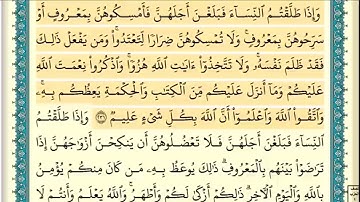 وَإِذَا طَلَّقْتُمُ النِّسَآءَ فَبَلَغْنَ أَجَلَهُنَّ فَأَمْسِكُوهُنَّ بِمَعْرُوفٍ أَوْ
سَرِّحُوهُنَّ بِمَعْرُوفٍ ۚ وَلَا تُمْسِكُوهُنَّ ضِرَارًا لِّتَعْتَدُوا۟ ۚ وَمَن يَفْعَلْ ذَٰلِكَ
فَقَدْ ظَلَمَ نَفْسَهُۥ ۚ وَلَا تَتَّخِذُوٓا۟ ءَايَٰتِ ٱللَّهِ هُزُوًا ۚ وَٱذْكُرُوا۟ نِعْمَتَ ٱللَّهِ
عَلَيْكُمْ وَمَآ أَنزَلَ عَلَيْكُم مِّنَ ٱلْكِتَٰبِ وَٱلْحِكْمَةِ يَعِظُكُم بِهِۦ ۚ
وَٱتَّقُوا۟ ٱللَّهَ وَٱعْلَمُوٓا۟ أَنَّ ٱللَّهَ بِكُلِّ شَىْءٍ عَلِيمٌ ٢٣١ وَإِذَا طَلَّقْتُمُ
ٱلنِّسَآءَ فَبَلَغْنَ أَجَلَهُنَّ فَلَا تَعْضُلُوهُنَّ أَن يَنكِحْنَ أَزْوَٰجَهُنَّ إِذَا
تَرَٰضَوْا۟ بَيْنَهُم بِٱلْمَعْرُوفِ ۗ ذَٰلِكَ يُوعَظُ بِهِۦ مَن كَانَ مِنكُمْ يُؤْمِنُ
بِٱللَّهِ وَٱلْيَوْمِ ٱلْـَٔاخِرِ ۗ ذَٰلِكُمْ أَزْكَىٰ لَكُمْ وَأَطْهَرُ ۗ وَٱللَّهُ يَعْلَمُ وَأَنتُمْ لَا